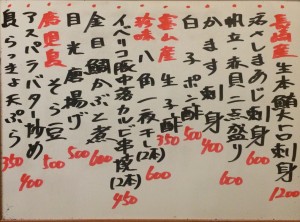 長崎産 生本鮪大トロ刺身 1200
活さしまあじ刺身 600
帆立・春貝二点盛り 600
かます刺身 500
白子ポン酢 400
富山産 生子酢 500
珍味 八角一夜干し(2本) 600
イベリコ豚中落カルビ串焼(2本) 450
金目鯛かぶと煮 600
目光唐揚げ 500
鹿児島 そら豆 500
アスパラバター炒め 400
島らっきょ天ぷら 350